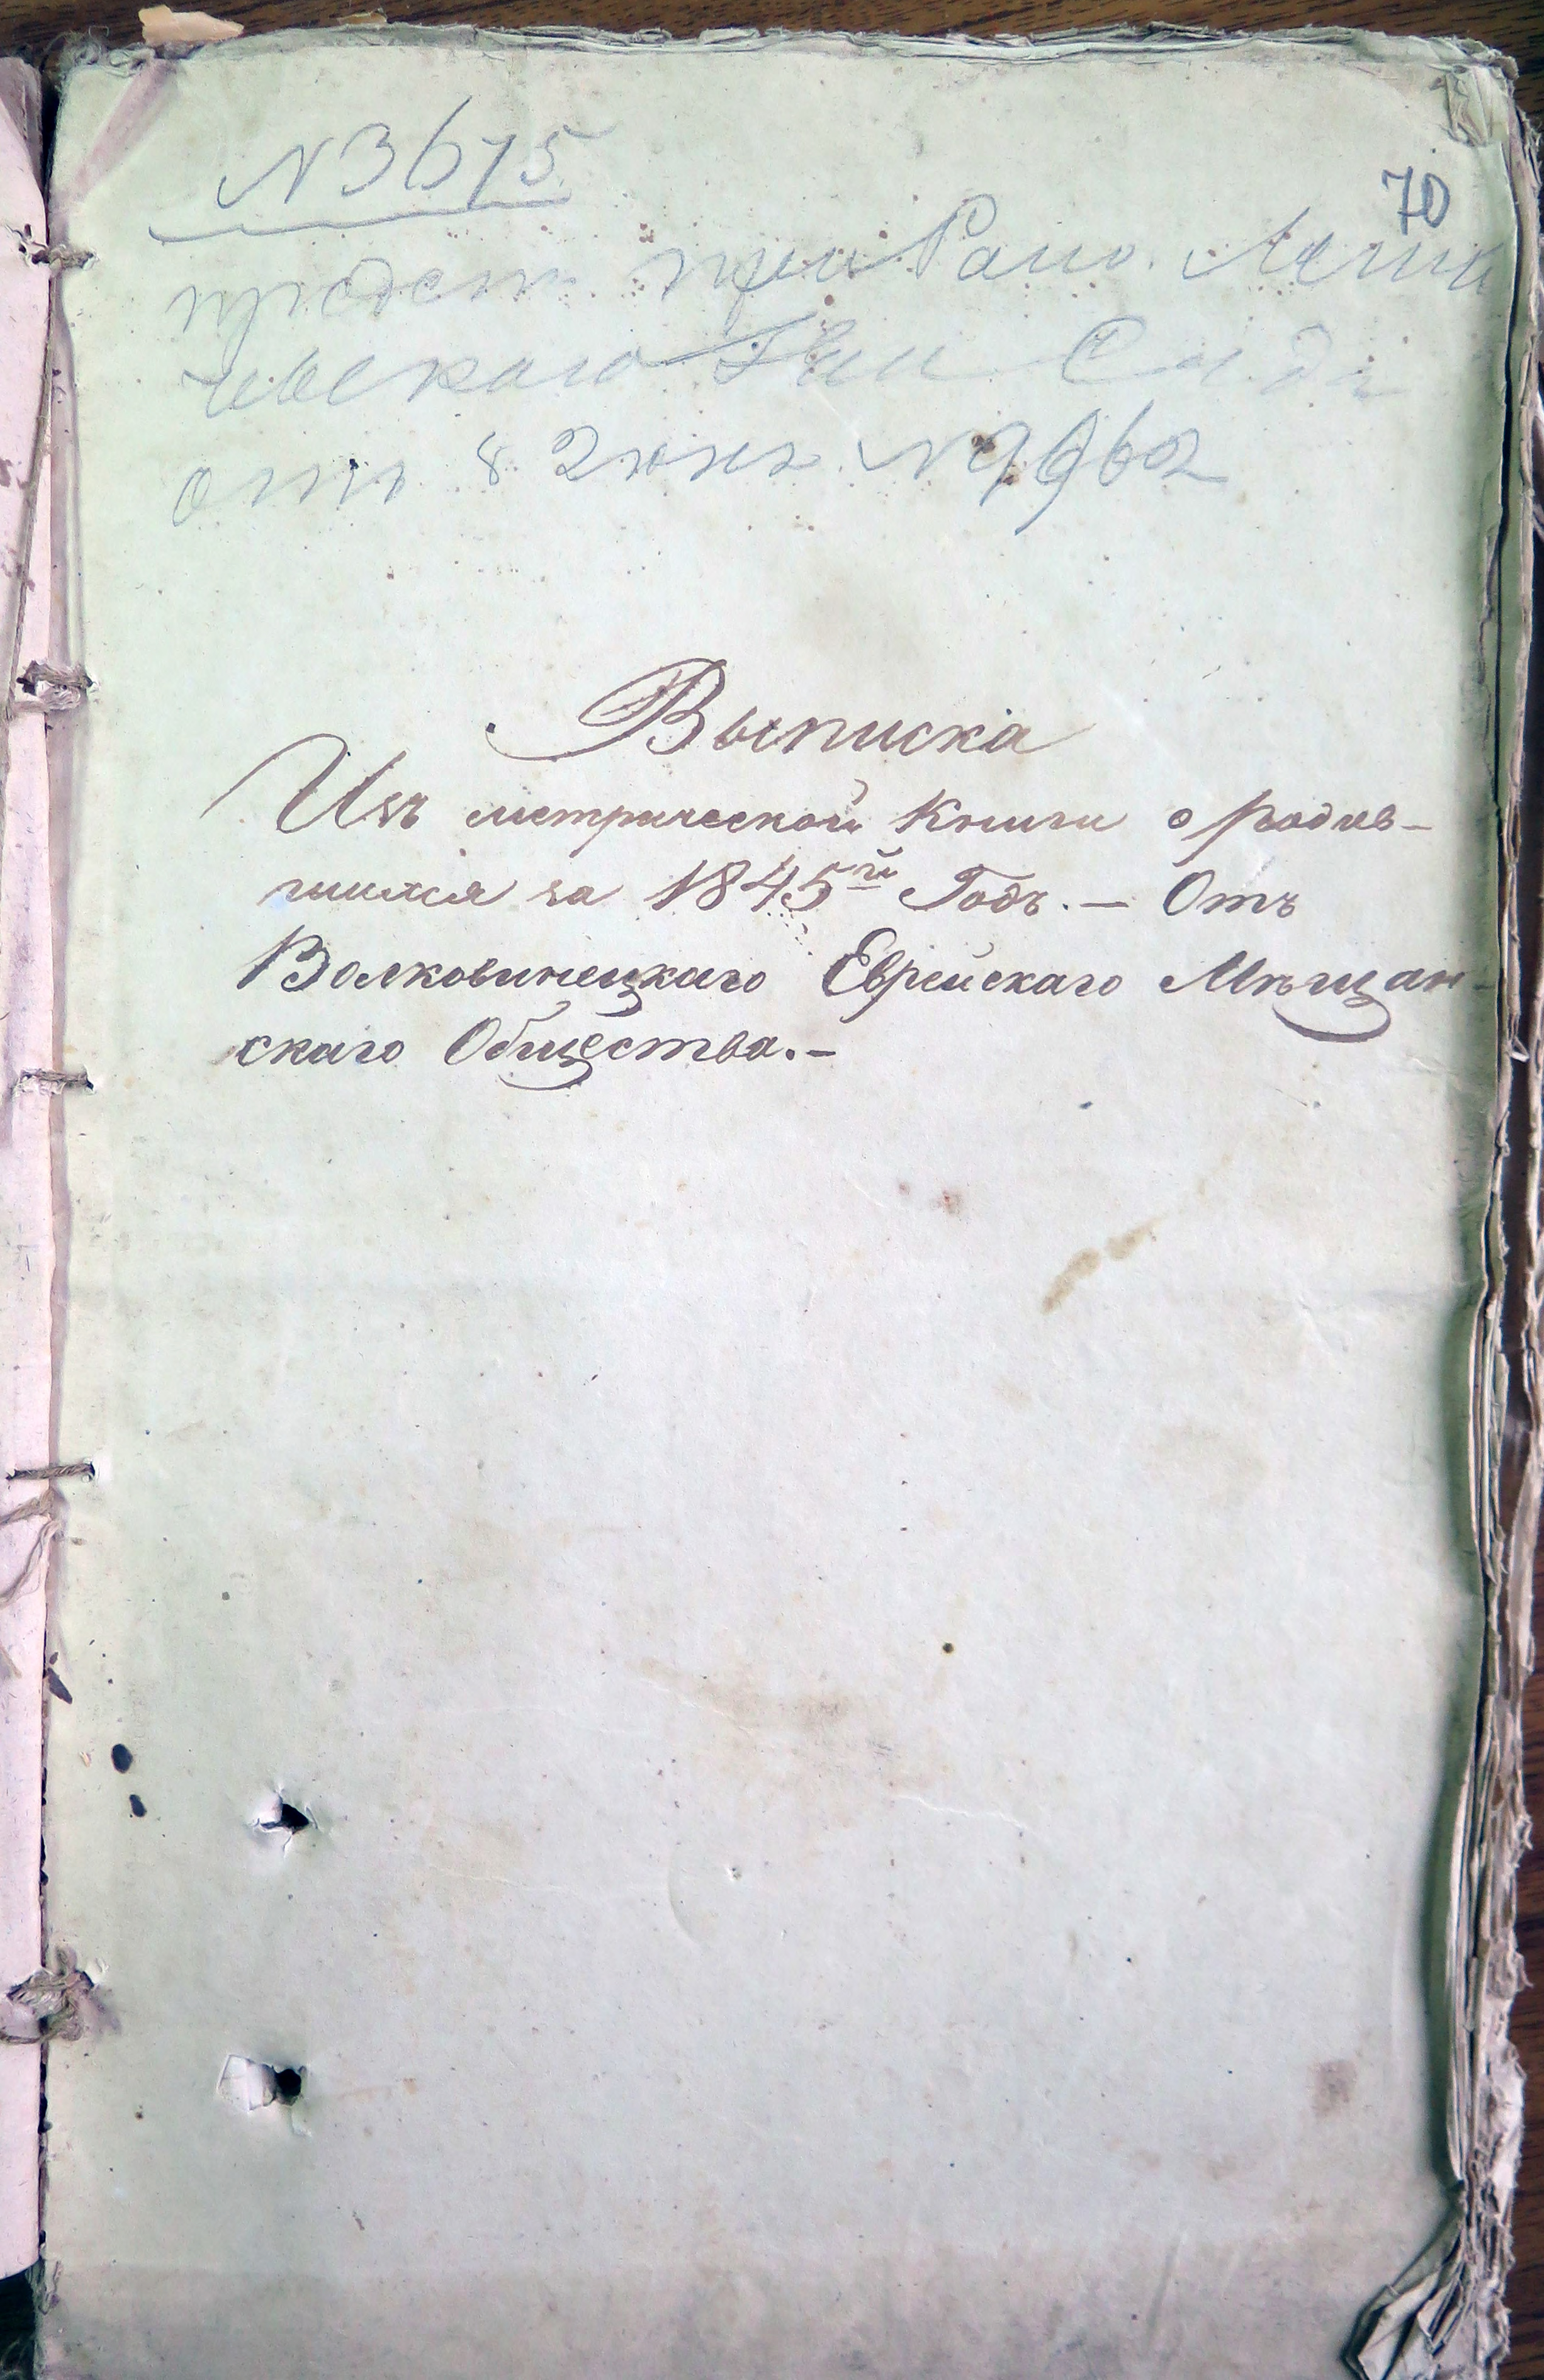 N 3675
70
предст. при Рапо. Лети
чевскаго Гор
от 8 Июня N 7962
Выписка
Изъ метрической Книги о родив-
шихся за 1845й Годъ. — Отъ
Волковинецкаго Еврейскаго Мѣщан-
скаго Общества. —